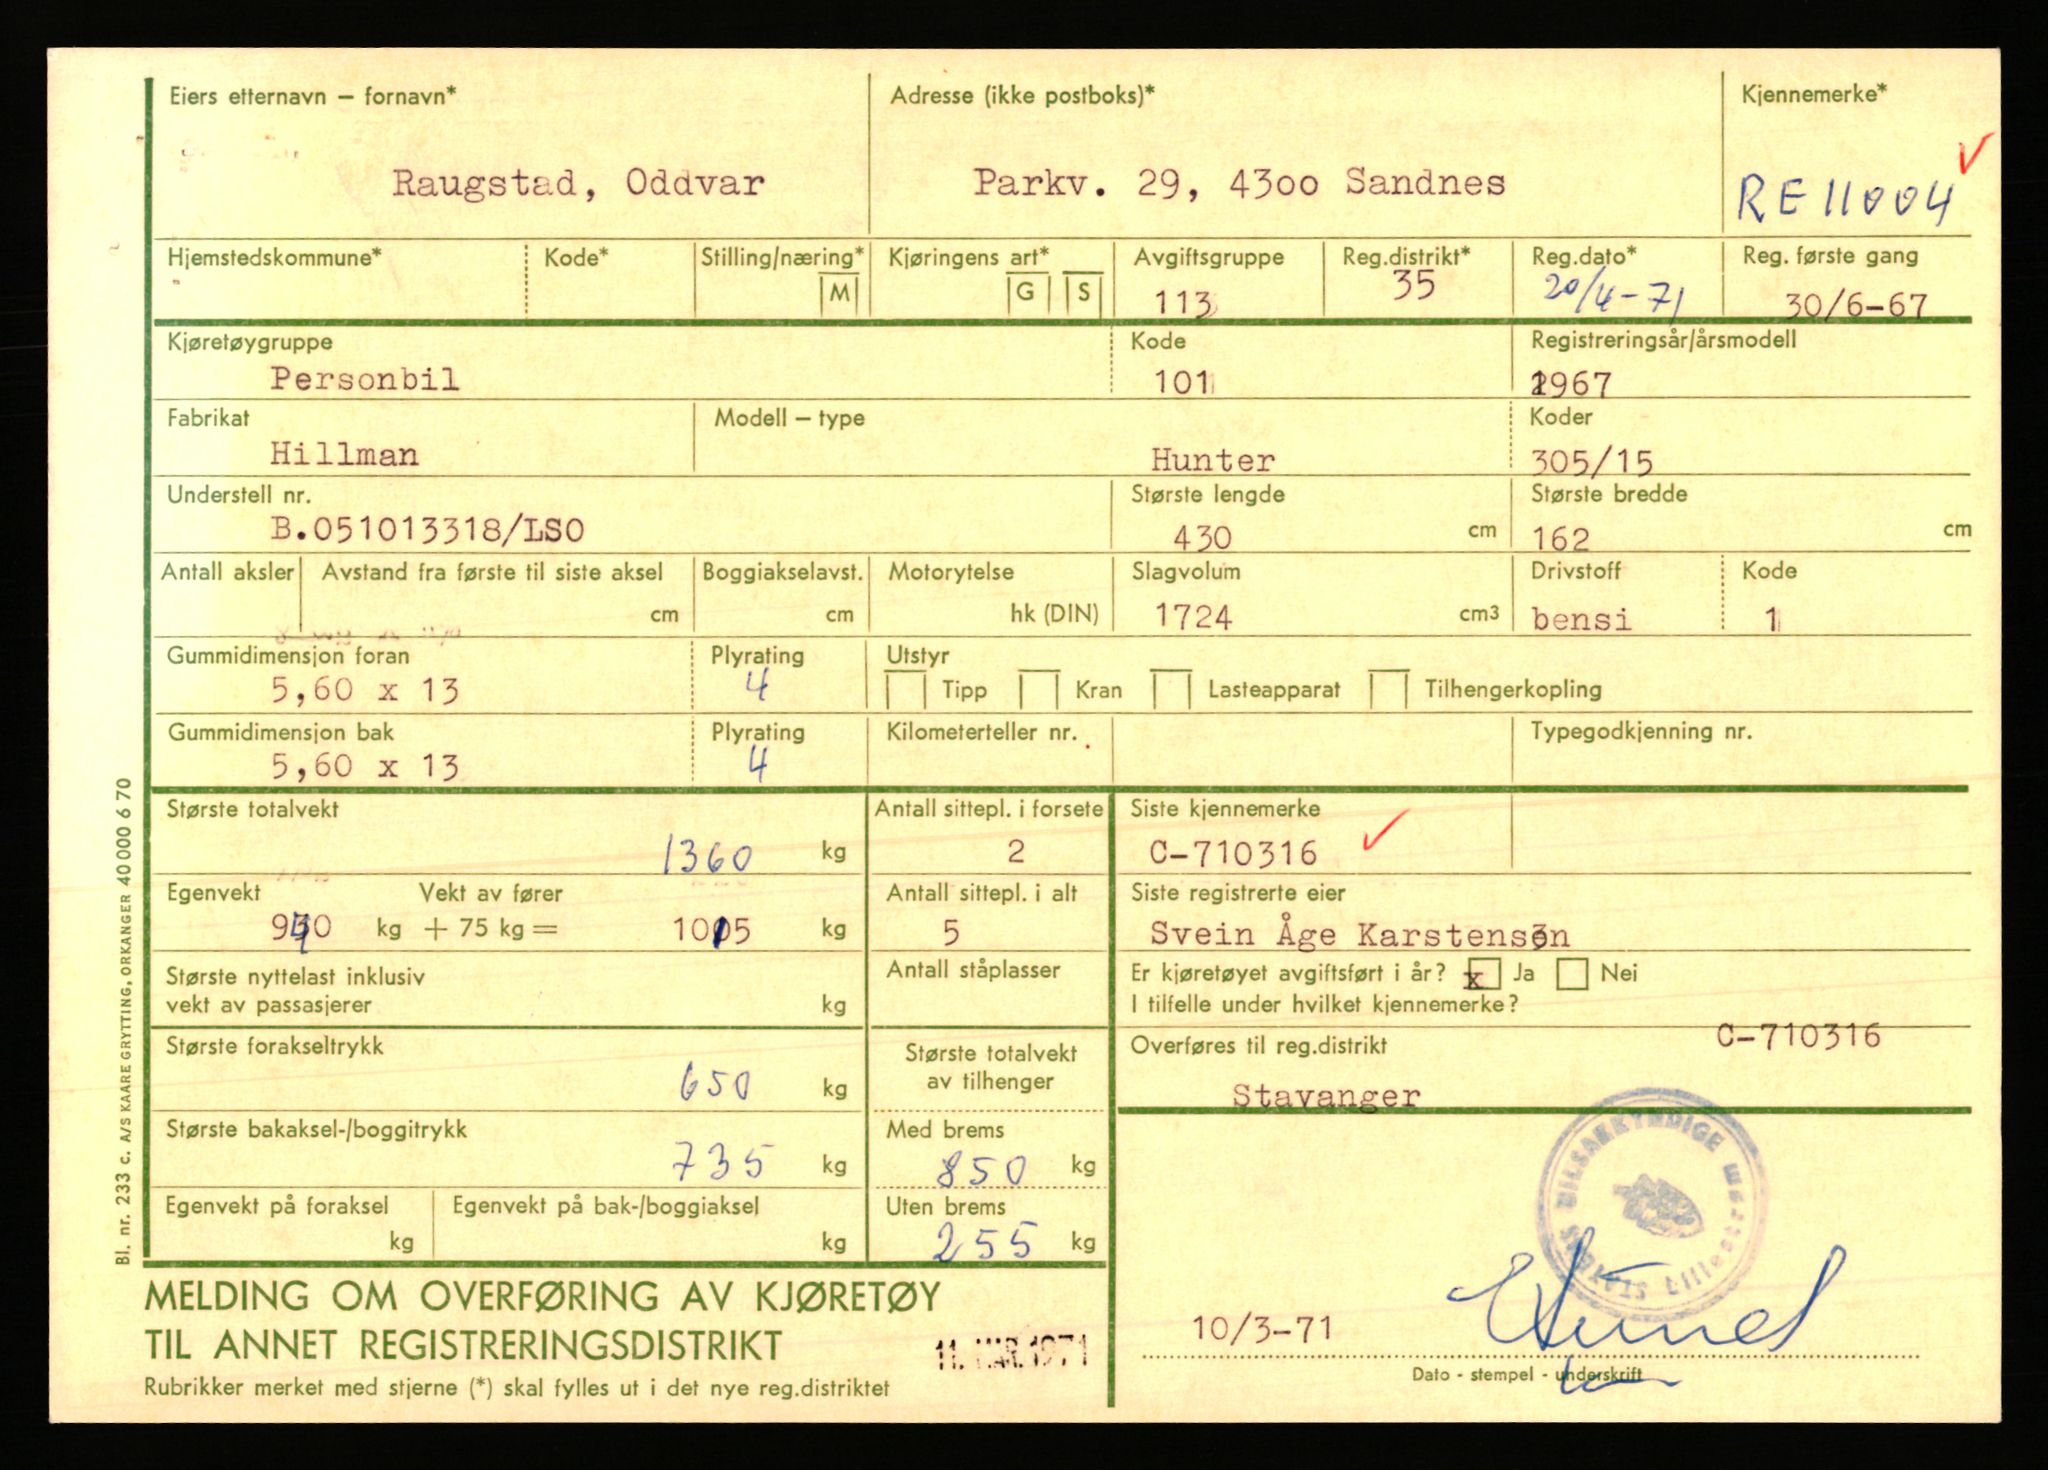 Eiers etternavn — fornavn* Adresse (ikke postboks)* Kjennemerke*
Raugstad, Oddvar Parkv. 29, 4300 Sandnes RE 11004
Hjemstedskommune* Kode* Stilling/næring* Kjøringens art* Avgiftsgruppe Reg.distrikt* Reg.dato* Reg. første gang
M G S 113 35 20/4-71 30/6-67
Kjøretøygruppe Kode Registreringsår/årsmodell
Personbil 101 1967
Fabrikat Modell — type Koder
Hillman Hunter 305/15
Understell nr. Største lengde Største bredde
B.051013318/LSO 430 cm 162 cm
Antall aksler Avstand fra første til siste aksel Boggiakselavst. Motorytelse Slagvolum Drivstoff Kode
cm cm hk (DIN) 1724 cm3 bensi 1
Gummidimensjon foran Plyrating Utstyr
5,60 x 13 4 Tipp Kran Lasteapparat Tilhengerkopling
Gummidimensjon bak Plyrating Kilometerteller nr. Typegodkjenning nr.
5,60 x 13 4
Største totalvekt Antall sittepl. i forsete Siste kjennemerke
1360 kg 2 C-710316
Egenvekt Vekt av fører Antall sittepl. i alt Siste registrerte eier
940 kg + 75 kg = 1015 kg 5 Svein Åge Karstensen
Største nyttelast inklusiv Antall ståplasser Er kjøretøyet avgiftsført i år? x Ja Nei
vekt av passasjerer kg I tilfelle under hvilket kjennemerke?
C-710316
Største forakseltrykk Største totalvekt Overføres til reg.distrikt
650 kg av tilhenger Stavanger
Største bakaksel-/boggitrykk Med brems
735 kg 850 kg
Egenvekt på foraksel Egenvekt på bak-/boggiaksel Uten brems
kg kg 255 kg
STATENS BILSAKKYNDIGE
Lillestrøm
MELDING OM OVERFØRING AV KJØRETØY
TIL ANNET REGISTRERINGSDISTRIKT 11. MAR. 1971 10/3-71
Rubrikker merket med stjerne (*) skal fylles ut i det nye reg.distriktet Dato - stempel - underskrift
Bl. nr. 233 c. A/S KAARE GRYTTING, ORKANGER 40 000 6 70